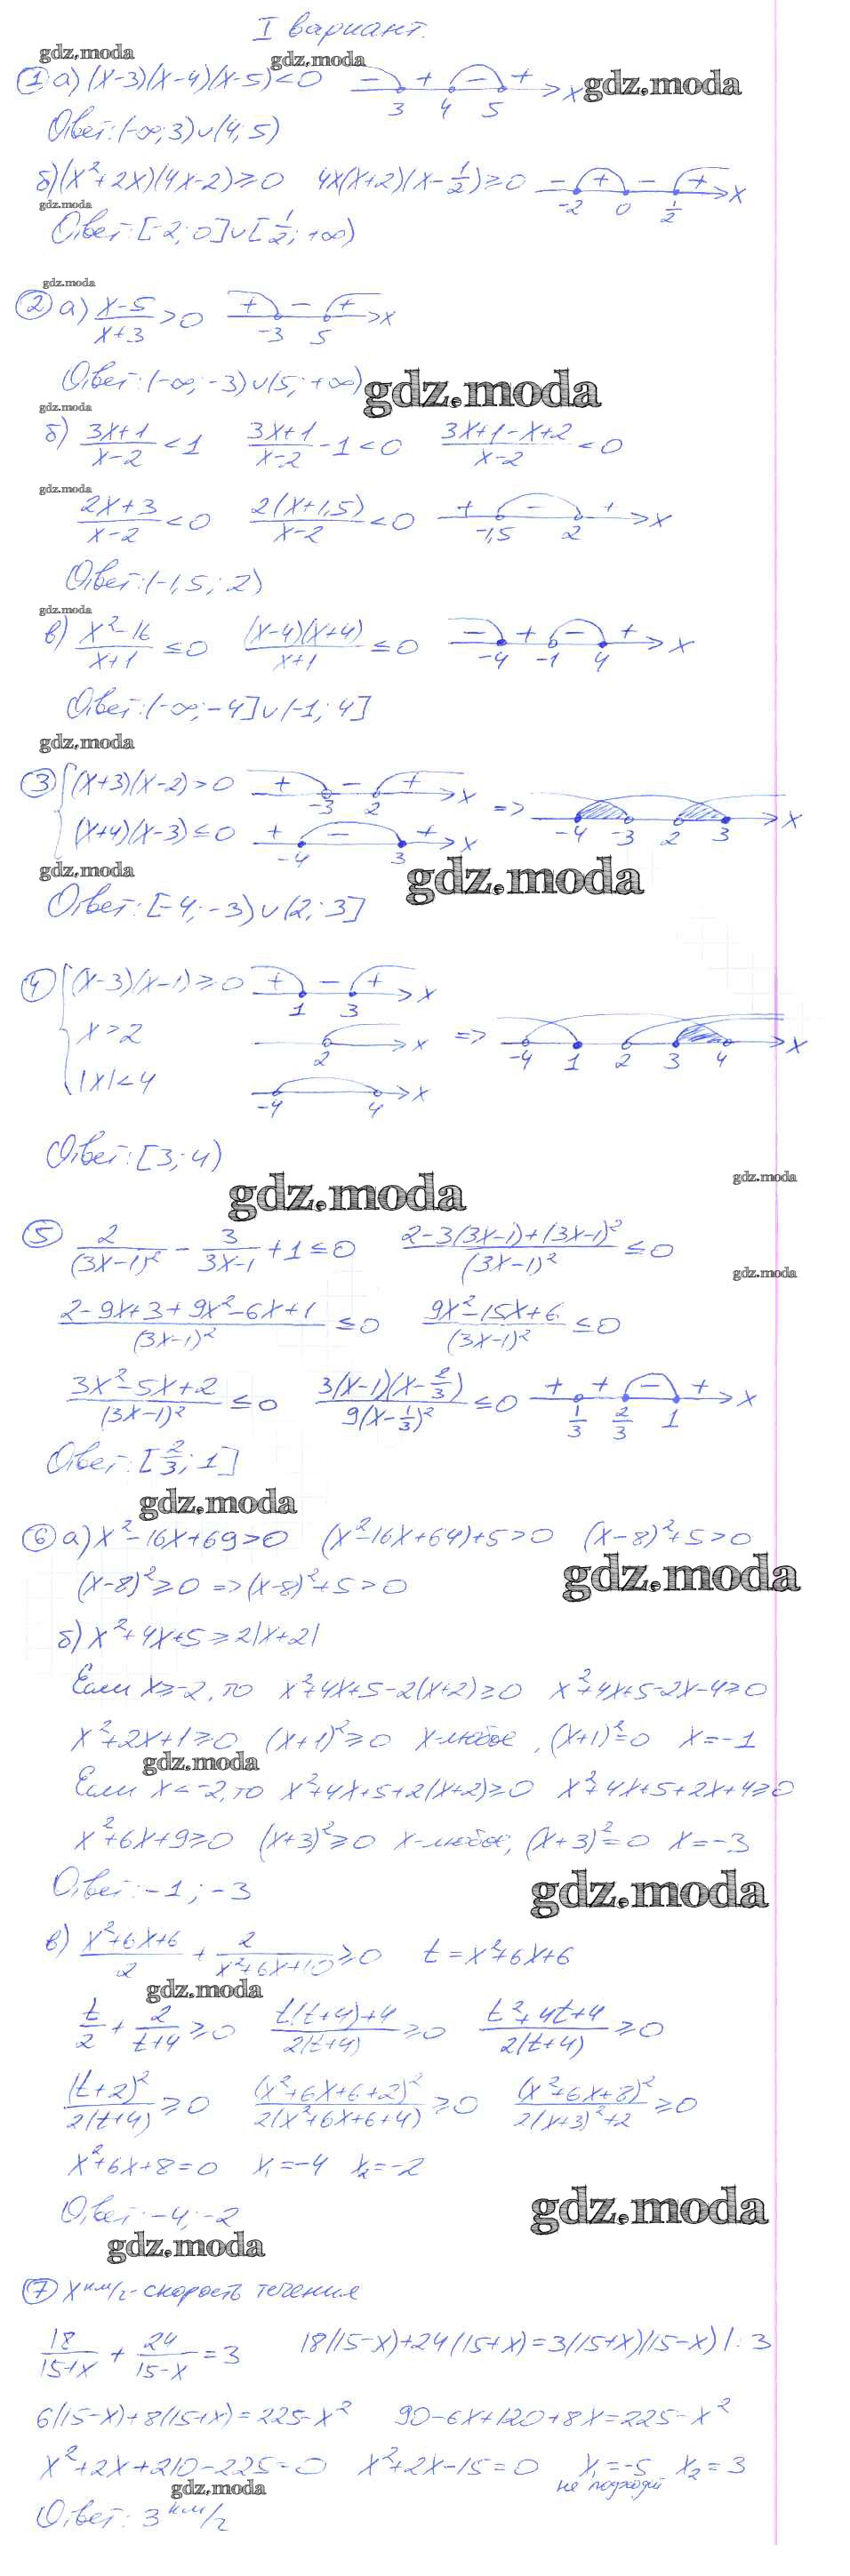 I вариант.
gdz.moda gdz.moda
① а) (x-3)(x-4)(x-5)<0 − + − + 3 4 5 x gdz.moda
Ответ: (-∞; 3)∪(4; 5)
б) (x²+2x)(4x-2)≥0 4x(x+2)(x-1/2)≥0 − + − + -2 0 1/2 x
gdz.moda
Ответ: [-2; 0]∪[1/2; +∞)
gdz.moda
② а) (x-5)/(x+3)>0 + − + -3 5 x
Ответ: (-∞; -3)∪(5; +∞) gdz.moda
gdz.moda
б) (3x+1)/(x-2)<1 (3x+1)/(x-2)-1<0 (3x+1-x+2)/(x-2)<0
gdz.moda
(2x+3)/(x-2)<0 2(x+1,5)/(x-2)<0 + − + -1,5 2 x
Ответ: (-1,5; 2)
gdz.moda
в) (x²-16)/(x+1)≤0 (x-4)(x+4)/(x+1)≤0 − + − + -4 -1 4 x
Ответ: (-∞; -4]∪(-1; 4]
gdz.moda
③ { (x+3)(x-2)>0 + − + -3 2 x => -4 -3 2 3 x
(x+4)(x-3)≤0 + − + -4 3 x
gdz.moda gdz.moda
Ответ: [-4; -3)∪(2; 3]
④ { (x-3)(x-1)≥0 + − + 1 3 x
x>2 2 x => -4 1 2 3 4 x
|x|<4 -4 4 x
Ответ: [3; 4)
gdz.moda gdz.moda
⑤ 2/(3x-1)² - 3/(3x-1) + 1≤0 (2-3(3x-1)+(3x-1)²)/(3x-1)² ≤0
gdz.moda
(2-9x+3+9x²-6x+1)/(3x-1)² ≤0 (9x²-15x+6)/(3x-1)² ≤0
(3x²-5x+2)/(3x-1)² ≤0 3(x-1)(x-2/3)/9(x-1/3)² ≤0 + + − + 1/3 2/3 1 x
Ответ: [2/3; 1]
gdz.moda
⑥ а) x²-16x+69>0 (x²-16x+64)+5>0 (x-8)²+5>0
gdz.moda
(x-8)²≥0 => (x-8)²+5>0
б) x²+4x+5≥2|x+2|
Если x≥-2, то x²+4x+5-2(x+2)≥0 x²+4x+5-2x-4≥0
x²+2x+1≥0 (x+1)²≥0 x-любое, (x+1)²=0 x=-1
gdz.moda
Если x<-2, то x²+4x+5+2(x+2)≥0 x²+4x+5+2x+4≥0
x²+6x+9≥0 (x+3)²≥0 x-любое; (x+3)²=0 x=-3
Ответ: -1; -3 gdz.moda
в) (x²+6x+6)/2 + 2/(x²+6x+10) ≥0 t=x²+6x+6
gdz.moda
t/2 + 2/(t+4) ≥0 (t(t+4)+4)/2(t+4) ≥0 (t²+4t+4)/2(t+4) ≥0
(t+2)²/2(t+4) ≥0 (x²+6x+6+2)²/2(x²+6x+6+4) ≥0 (x²+6x+8)²/2(x+3)²+2 ≥0
x²+6x+8=0 x₁=-4 x₂=-2
Ответ: -4; -2 gdz.moda
gdz.moda
⑦ x км/ч - скорость течения
18/(15+x) + 24/(15-x) = 3 18(15-x)+24(15+x)=3(15+x)(15-x) |:3
6(15-x)+8(15+x)=225-x² 90-6x+120+8x=225-x²
x²+2x+210-225=0 x²+2x-15=0 x₁=-5 x₂=3
gdz.moda не подходит
Ответ: 3 км/ч